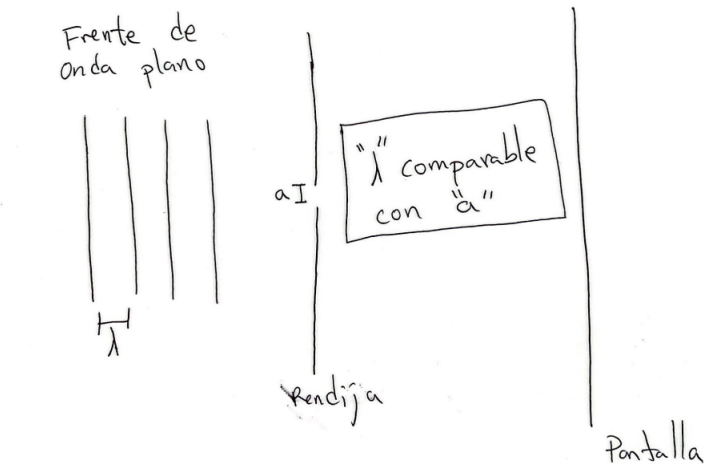 Frente de
Onda plano
a
"λ" comparable
con "a"
λ
Rendija
Pantalla